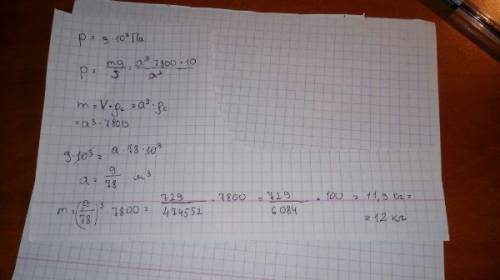 p = 9·10³ Па
p = ma/S = a³·7800·10/a²
m = V·ρc = a³·ρc
= a³·7800
9·10³ = a 78·10³
a = 9/78 м³
m = (9/78)³·7800 = 729/474552 · 7800 = 729/6084 · 100 = 11,9 кг =
= 12 кг